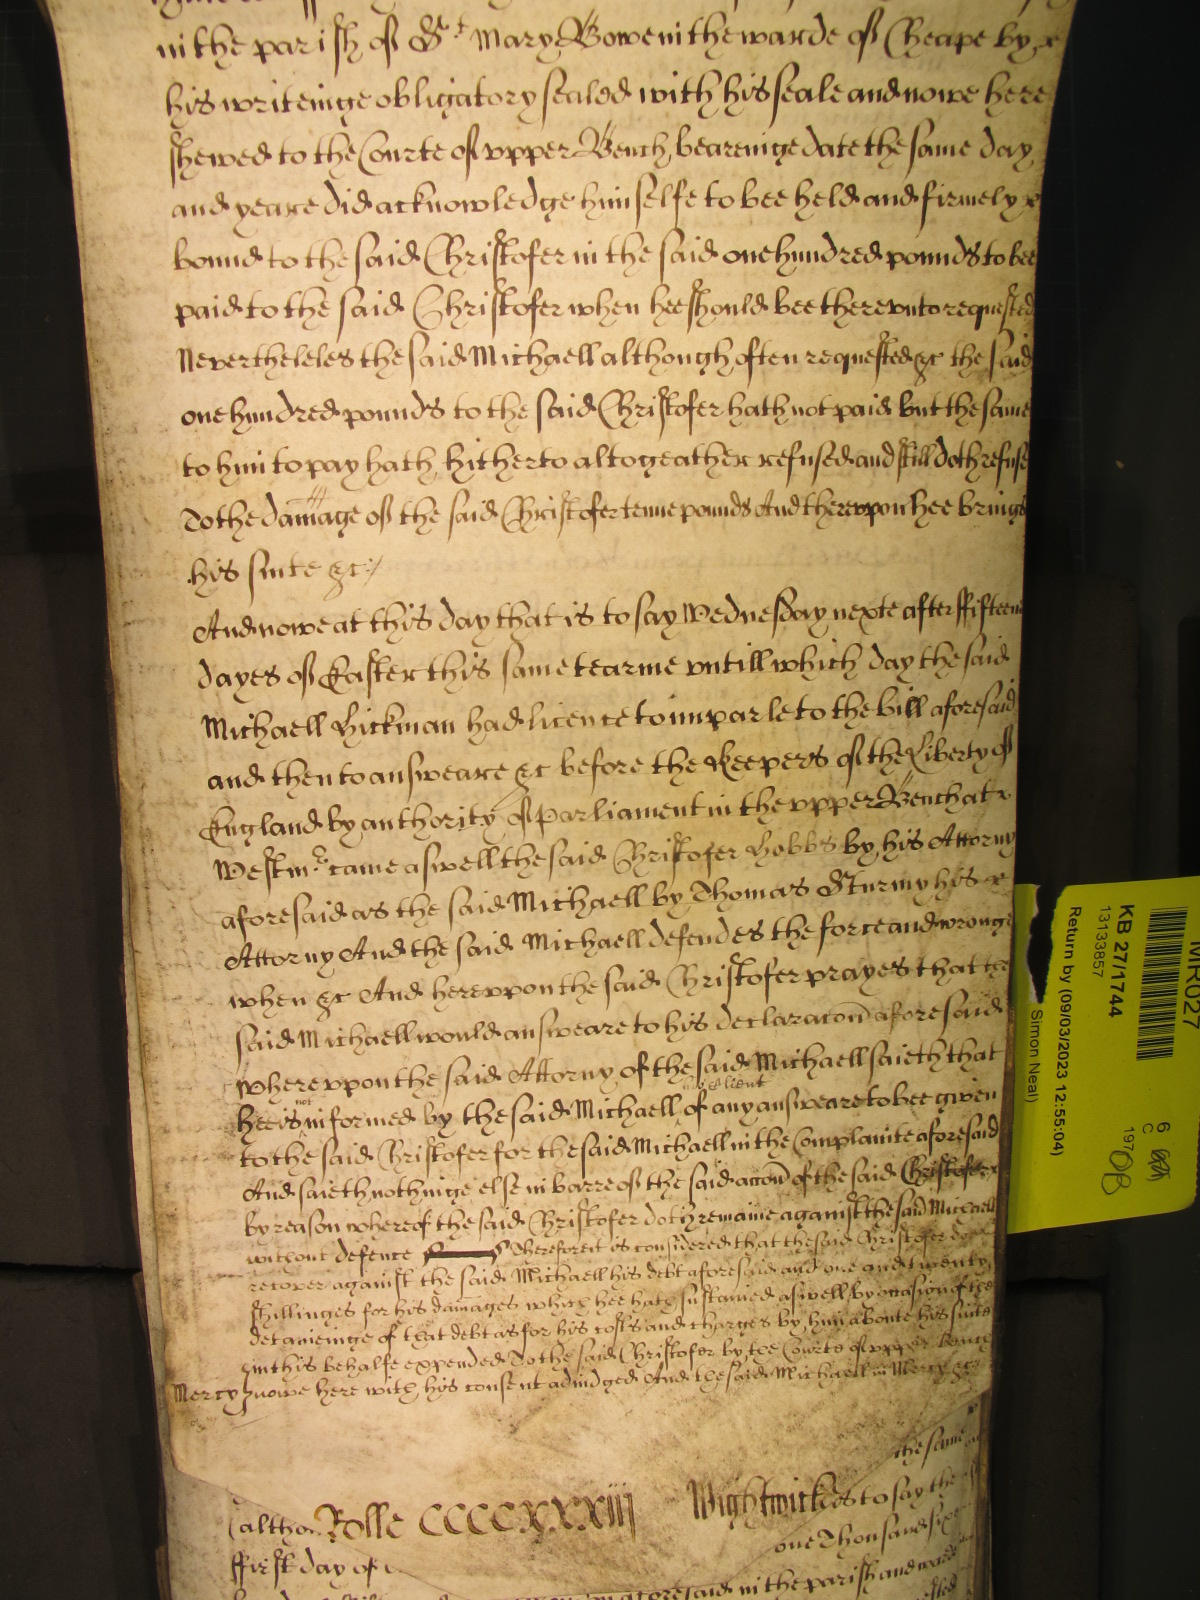 in the parish of St Mary Bowe in the warde of Cheape by
his writeinge obligatory sealed with his seale and nowe here
shewed to the Courte of vpper Bench beareinge date the same day
and yeare did acknowledge himselfe to bee held and firmely
bound to the said Christofer in the said one hundred pounds to bee
paid to the said Christofer when hee should bee therevnto requested
Neverthelesse the said Michaell although often requested &c the said
one hundred pounds to the said Christofer hath not paid but the same
to him to pay hath hitherto altogeather refused and still doth refuse
To the damage of the said Christofer tenne pounds And therevpon hee brings
his suite &c
And nowe at this day that is to say Wednesday nexte after ffifteene
dayes of Easter this same tearme vntill which day the said
Michaell Hickman had licence to imparle to the bill aforesaid
and then to answeare &c before the Keepers of the Liberty of
England by authority of Parliament in the vpper Bench at
Westmr came aswell the said Christofer Hobbs by his Attorny
aforesaid as the said Michaell by Thomas Sturmy his
Attorny And the said Michaell defendes the force and wronge
when &c And herevpon the said Christofer prayes that the
said Michaell would answeare to his declaracon aforesaid
wherevpon the said Attorny of the said Michaell saieth that
his Client
hee is not informed by the said Michaell of any answeare to bee given
to the said Christofer for the said Michaell in the Complainte aforesaid
And saieth nothinge else in barre of the said accon of the said Christofer
by reason whereof the said Christofer doth remaine against the said Michaell
without defence Therefore it is considered that the said Christofer doe
recover against the said Michaell his debt aforesaid and one and twenty
shillinges for his damages which hee hath sustained aswell by occasion of the
detaineinge of that debt as for his costs and charges by him aboute his suite
in this behalfe expended To the said Christofer by the Courte of vpper Bench
Mercy nowe here with his consent adiudged And the said Michaell in Mercy &c
the same
Rolle CCCCXXXiiij Wightwicke
is to say the
(althou
one Thousand six
ffirst day of
aforesaid in the parish and warde